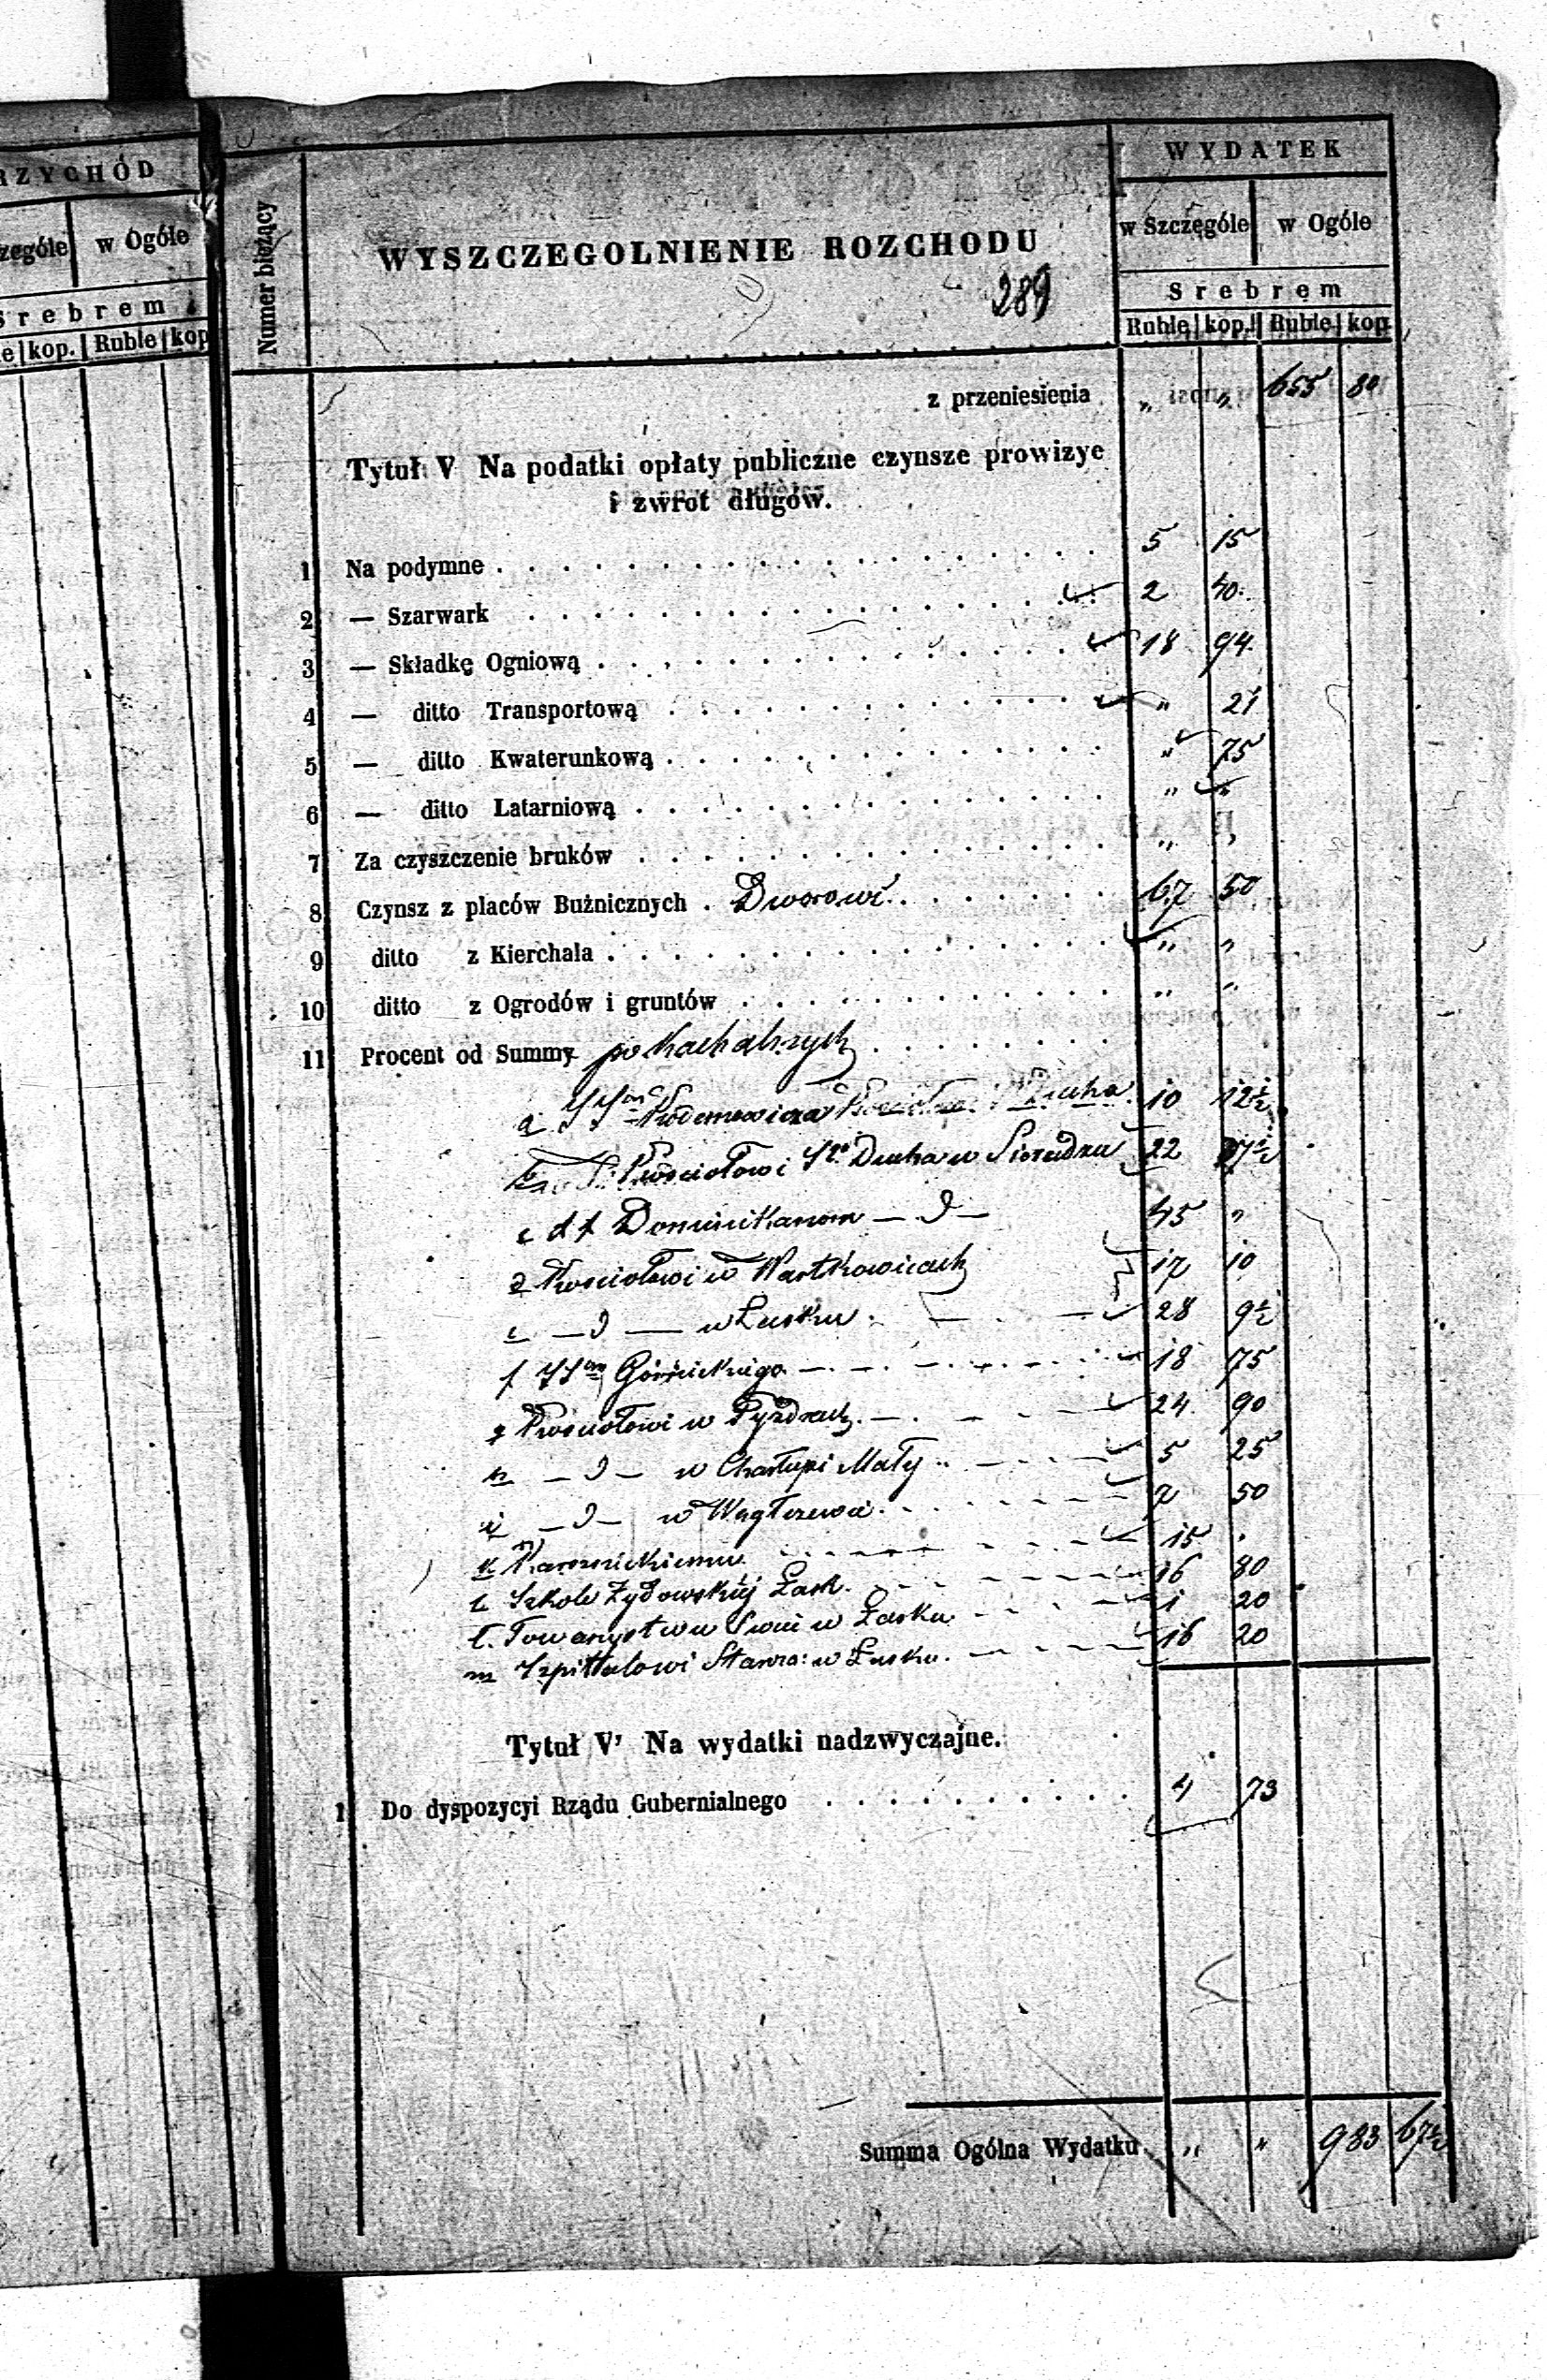 RZYCHÓD
zególe w Ogóle
Srebrem
le kop. Ruble kop
Numer bieżący
WYSZCZEGOLNIENIE ROZCHODU
289
WYDATEK
w Szczególe w Ogóle
Srebrem
Ruble kop. Ruble kop.
z przeniesienia „ „ 655 80
Tytuł V Na podatki opłaty publiczne czynsze prowizye
i zwrot długów.
1 Na podymne 5 15
2 — Szarwark 2 40
3 — Składkę Ogniową 18 94
4 — ditto Transportową „ 21
5 — ditto Kwaterunkową „ 75
6 — ditto Latarniową „ „
7 Za czyszczenie bruków „ „
8 Czynsz z placów Bużnicznych Dworowi 67 50
9 ditto z Kierchala „ „
10 ditto z Ogrodów i gruntów „ „
11 Procent od Summy po Kachalnych
a 10 12½
b Kościołowi Sgo Ducha w Sieradzu 22 27½
c Dominikanom — d — 45 „
d Kościołowi w Wartkowicach 17 10
e — d — w Łasku 28 9½
f 18 75
g Kościołowi w Pyzdrach 24 90
h — d — w Charłupi Mały 5 25
i — d — w 7 50
k 15 .
l Szkole Żydowskiej Łask. 16 80
ł. Towarzystwu w Łasku 1 20
m Szpitalowi Starza: w Łasku. 16 20
Tytuł V' Na wydatki nadzwyczajne.
1 Do dyspozycyi Rządu Gubernialnego 4 73
Summa Ogólna Wydatku „ „ 983 67½